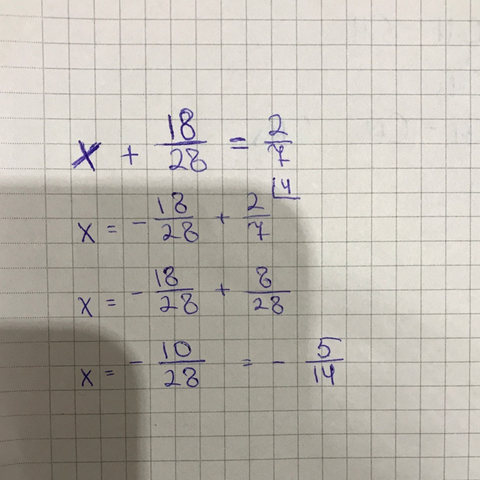 x + 18/28 = 2/7
x = - 18/28 + 2/7 ⌊4
x = - 18/28 + 8/28
x = - 10/28 = - 5/14